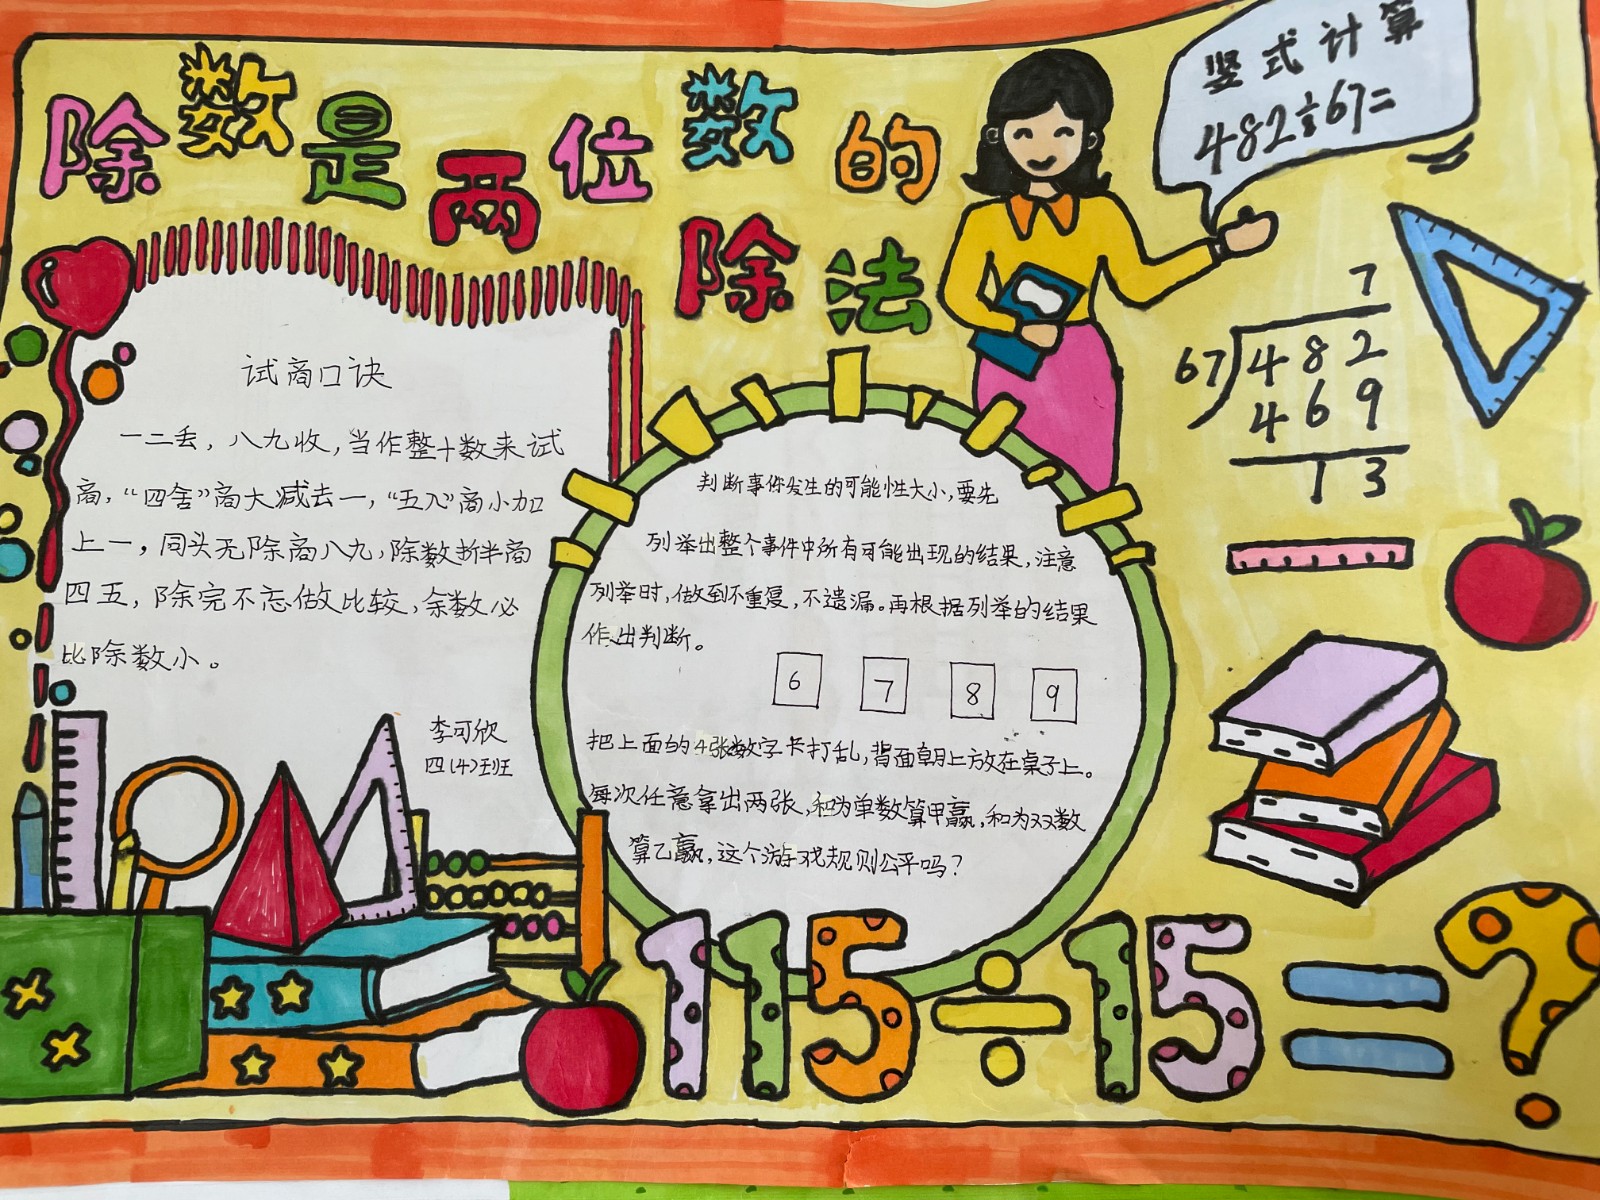 除数是两位数的
除法
竖式计算
482÷67=
7
67 482
469
13
试商口诀
一二丢，八九收，当作整十数来试
商，“四舍”商大减去一，“五入”商小加
上一，同头无除商八九，除数折半商
四五，除完不忘做比较，余数必
比除数小。
李可欣
四(4)班
判断事件发生的可能性大小，要先
列举出整个事件中所有可能出现的结果，注意
列举时，做到不重复，不遗漏。再根据列举的结果
作出判断。
6 7 8 9
把上面的4张数字卡打乱，背面朝上放在桌子上。
每次任意拿出两张，和为单数算甲赢，和为双数
算乙赢，这个游戏规则公平吗？
115÷15=?